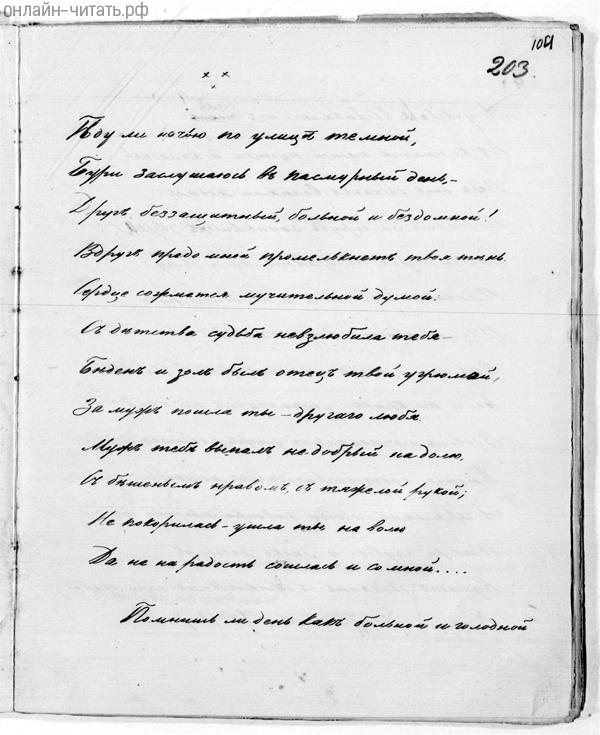 онлайн-читать.рф
104
203.
× ×
×
Ѣду ли ночью по улицѣ темной,
Бури заслушаюсь въ пасмурный день,–
Другъ беззащитный, больной и бездомной!
Вдругъ предо мной промелькнетъ твоя тѣнь.
Сердце сожмется мучительной думой.
Съ дѣтства судьба невзлюбила тебя–
Бѣденъ и золъ былъ отецъ твой угрюмой,
За мужъ пошла ты – другаго любя.
Мужъ тебѣ выпалъ недобрый на долю,
Съ бѣшенымъ нравомъ, съ тяжелой рукой;
Не покорилась – ушла ты на волю
Да не на радость сошлась и со мной....
Помнишь ли день какъ больной и голодной